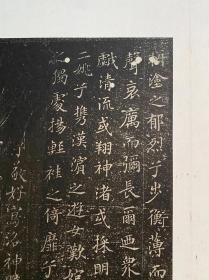 塗之郁烈兮步衡薄而
聲哀厲而彌長爾迺衆
戲清流或翔神渚或採明
二姚兮攜漢濱之遊女歎
獨處揚輕袿之倚靡
子敬好寫洛神